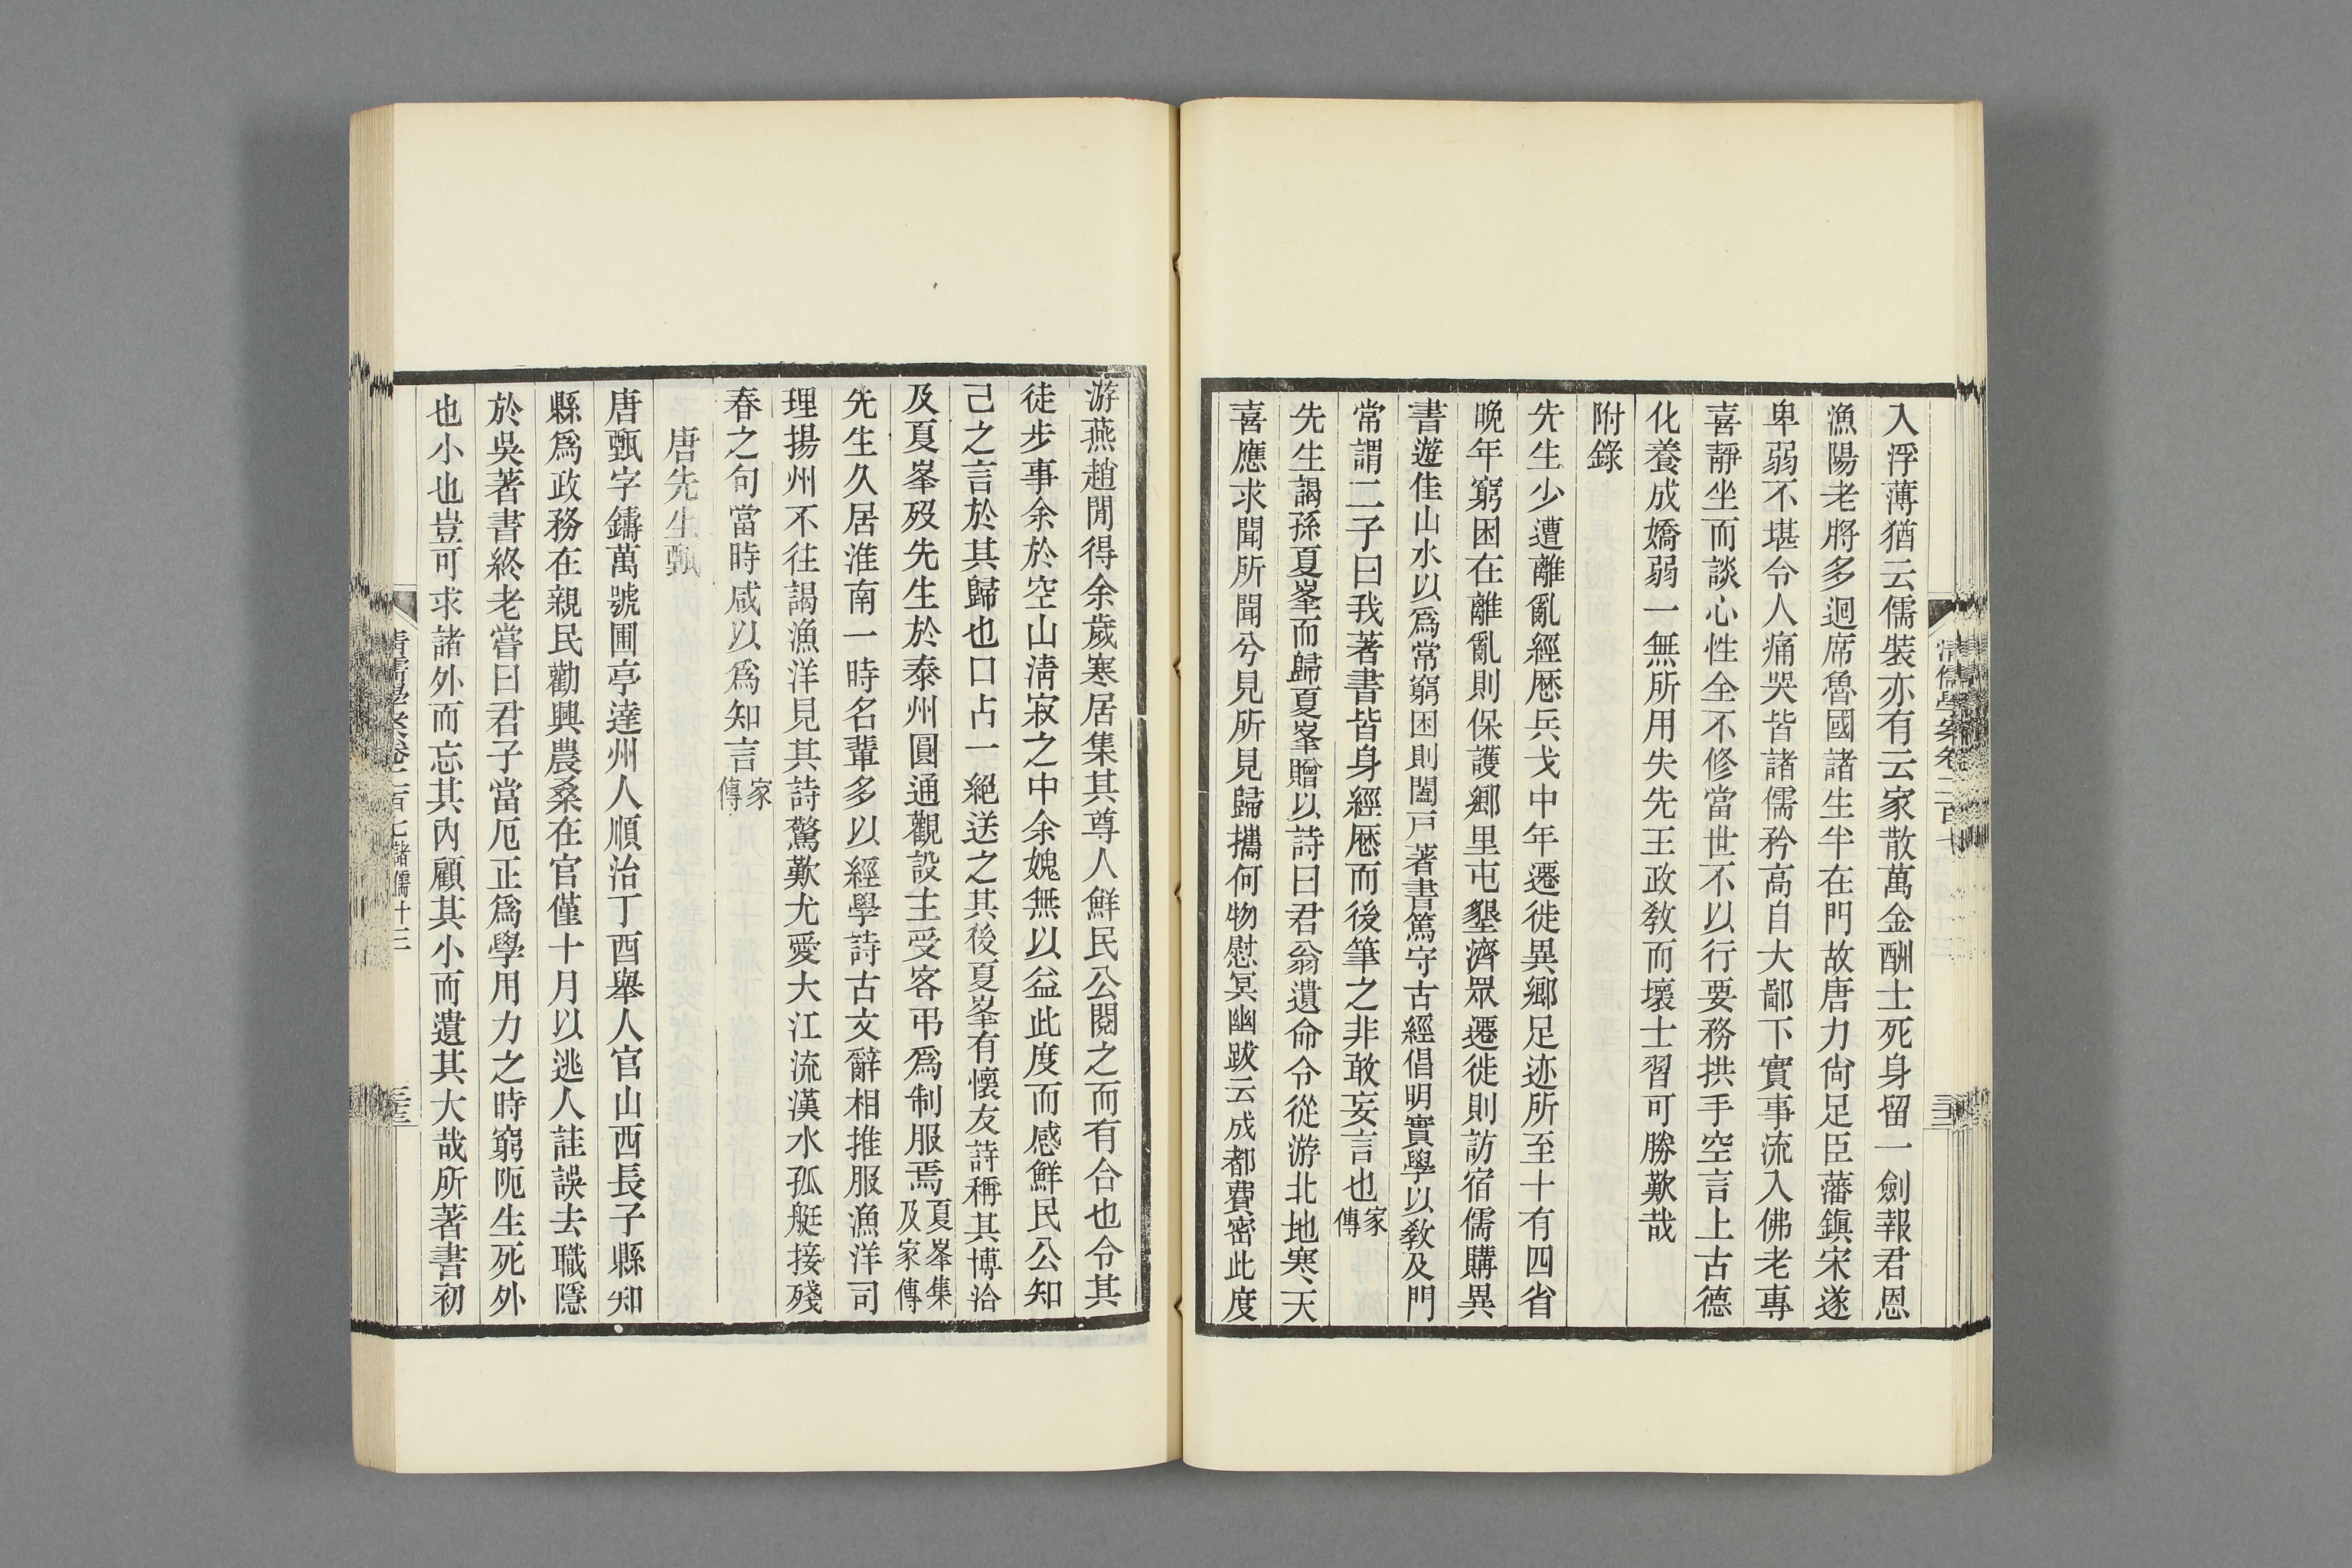 入浮薄猶云儒裝亦有云家散萬金酬士死身留一劍報君恩
漁陽老將多迴席魯國諸生半在門故唐力尙足臣藩鎭宋遂
卑弱不堪令人痛哭皆諸儒矜高自大鄙下實事流入佛老專
喜靜坐而談心性全不修當世不以行要務拱手空言上古德
化養成嬌弱一無所用失先王政敎而壞士習可勝歎哉
附錄
先生少遭離亂經歷兵戈中年遷徙異鄉足迹所至十有四省
晚年窮困在離亂則保護鄉里屯墾濟眾遷徙則訪宿儒購異
書遊佳山水以爲常窮困則闔戸著書篤守古經倡明實學以敎及門
常謂二子曰我著書皆身經歷而後筆之非敢妄言也家傳
先生謁孫夏峯而歸夏峯贈以詩曰君翁遺命令從游北地寒天
喜應求聞所聞兮見所見歸攜何物慰冥幽跋云成都費密此度
游燕趙閒得余歲寒居集其尊人鮮民公閱之而有合也令其
徒步事余於空山淸寂之中余媿無以益此度而感鮮民公知
己之言於其歸也口占一絕送之其後夏峯有懷友詩稱其博洽
及夏峯歿先生於泰州圓通觀設主受客弔爲制服焉夏峯集及家傳
先生久居淮南一時名輩多以經學詩古文辭相推服漁洋司
理揚州不往謁漁洋見其詩驚歎尤愛大江流漢水孤艇接殘
春之句當時咸以爲知言家傳
唐先生甄
唐甄字鑄萬號圃亭達州人順治丁酉舉人官山西長子縣知
縣爲政務在親民勸興農桑在官僅十月以逃人詿誤去職隱
於吳著書終老嘗曰君子當厄正爲學用力之時窮阨生死外
也小也豈可求諸外而忘其內顧其小而遺其大哉所著書初